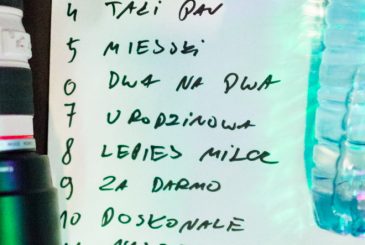 4 TAKI PAN
5
6 DWA NA DWA
7 URODZINOWA
8 LEPIEJ MILCZ
9 ZA DARMO
10 DOSKONALE